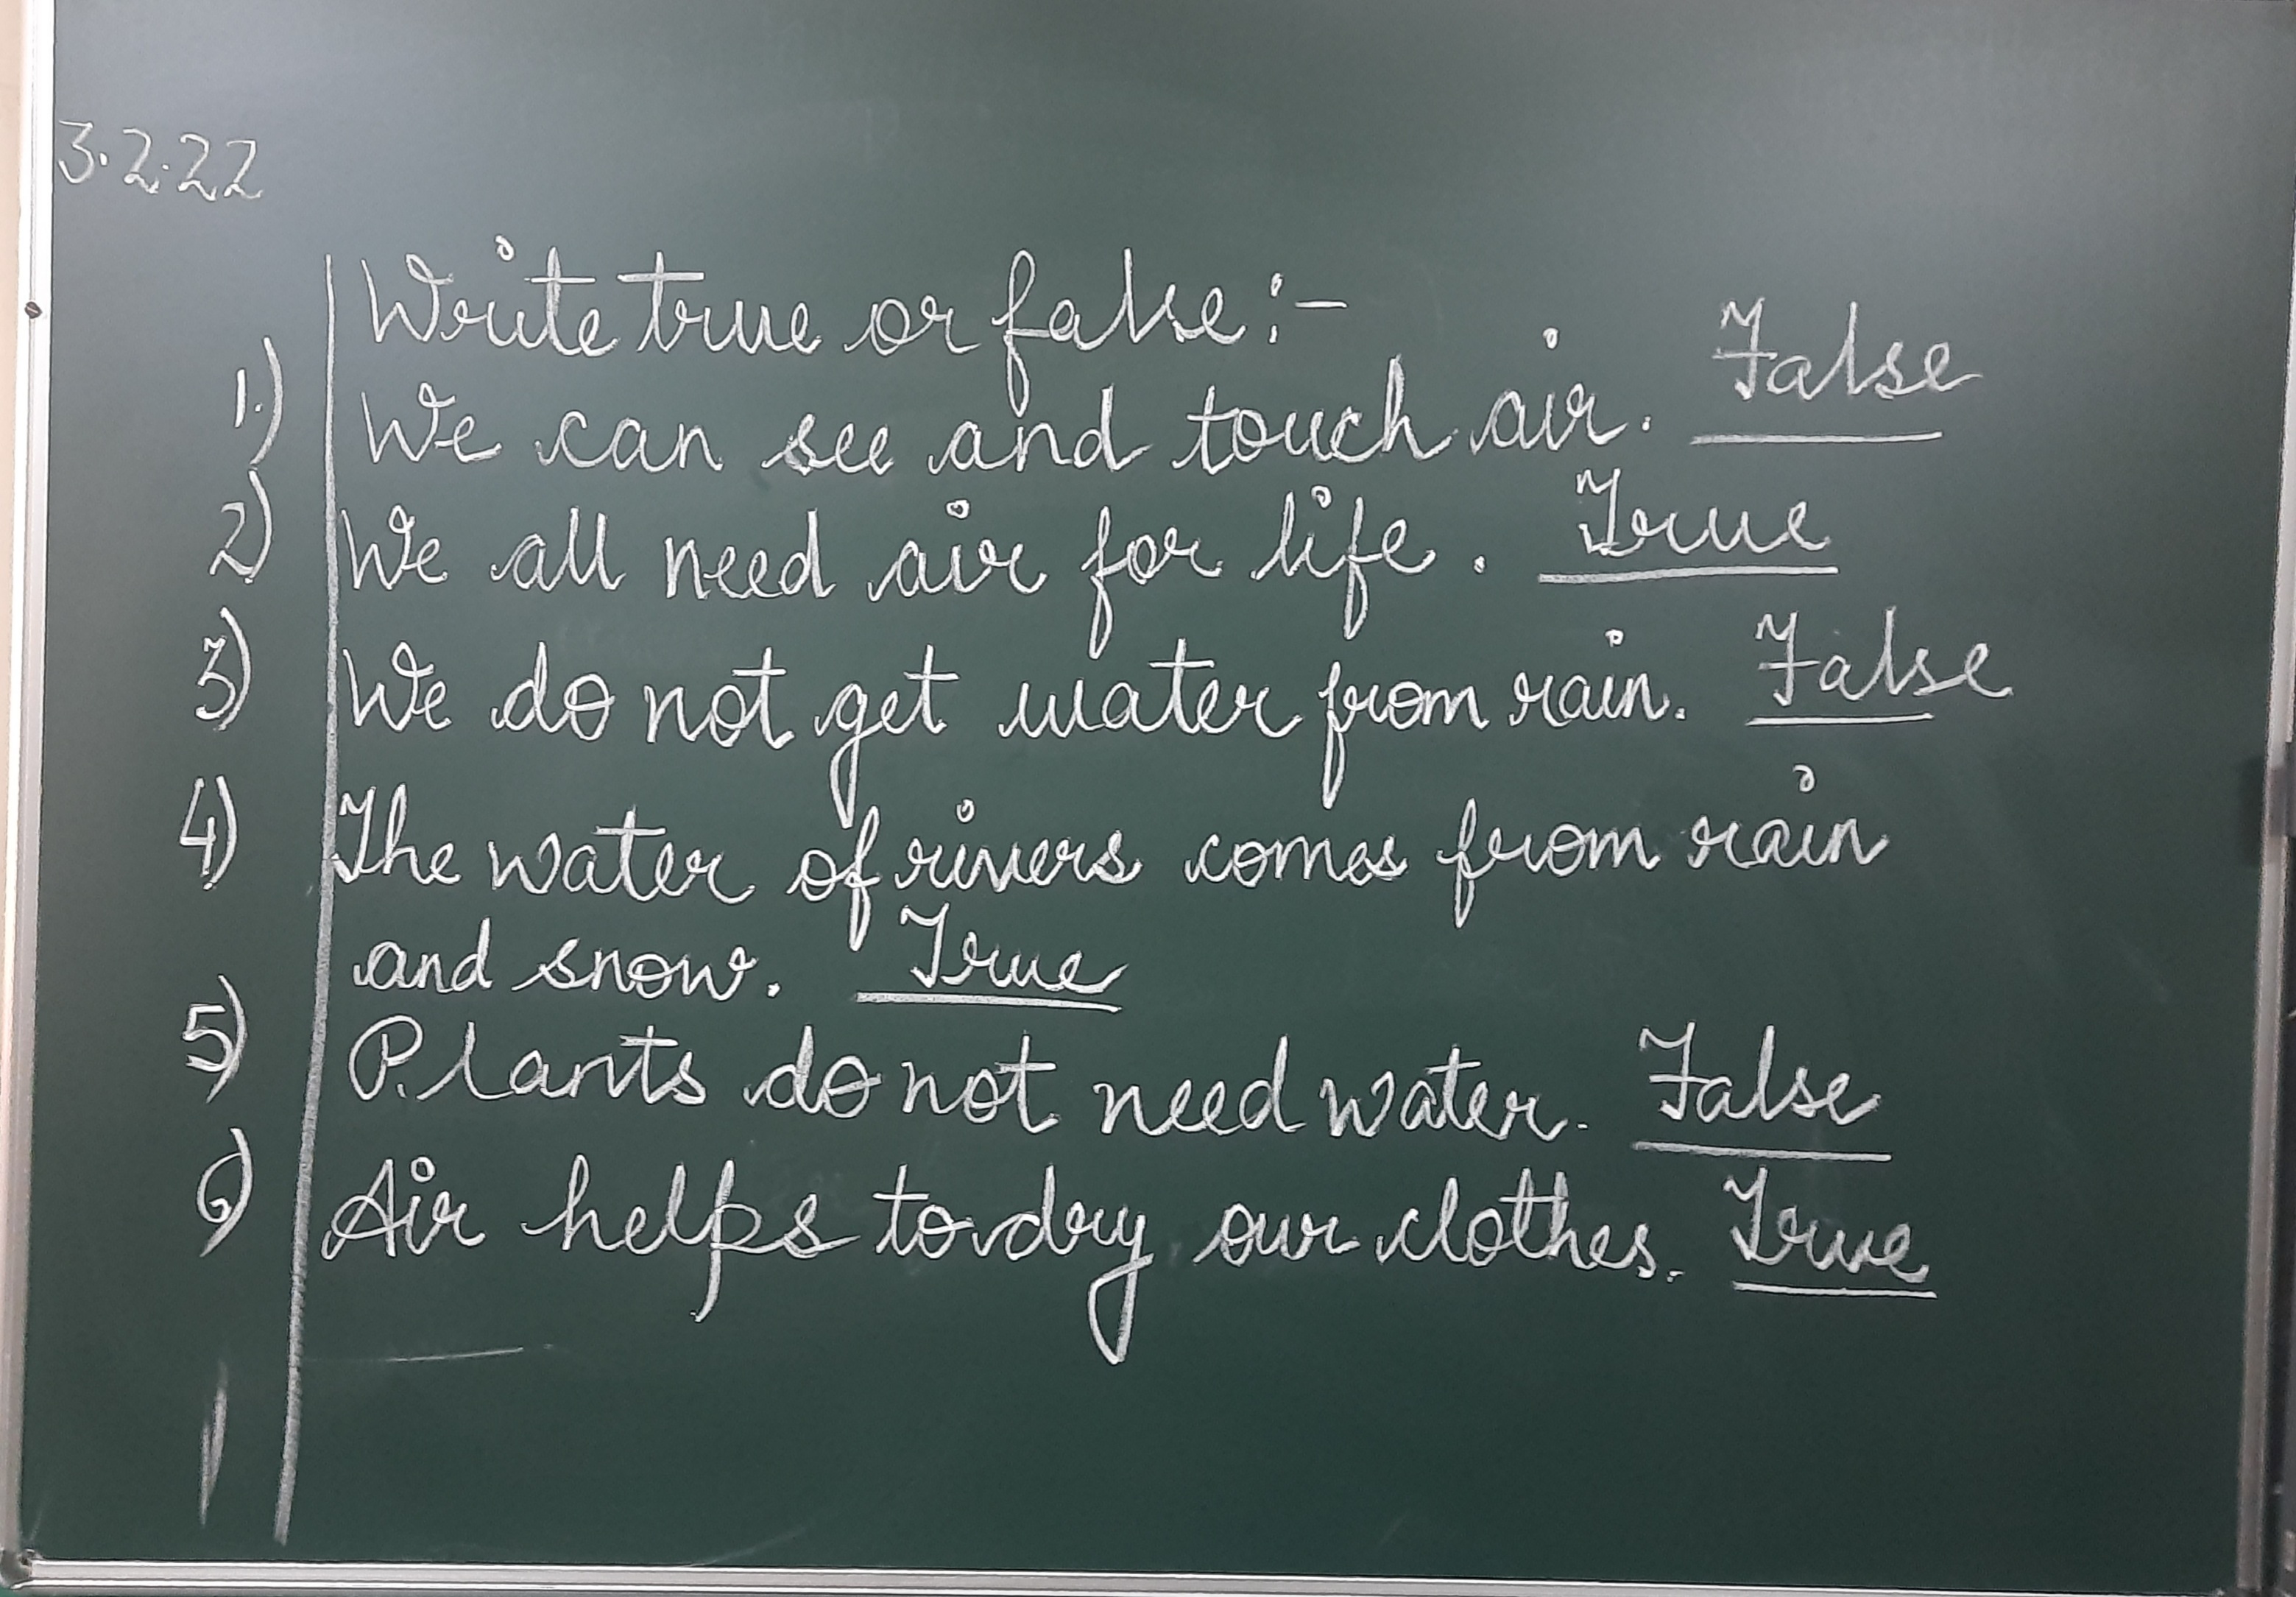 3.2.22
Write true or false:-
1.) We can see and touch air. False
2) We all need air for life. True
3) We do not get water from rain. False
4) The water of rivers comes from rain
and snow. True
5) Plants do not need water. False
6) Air helps to dry our clothes. True